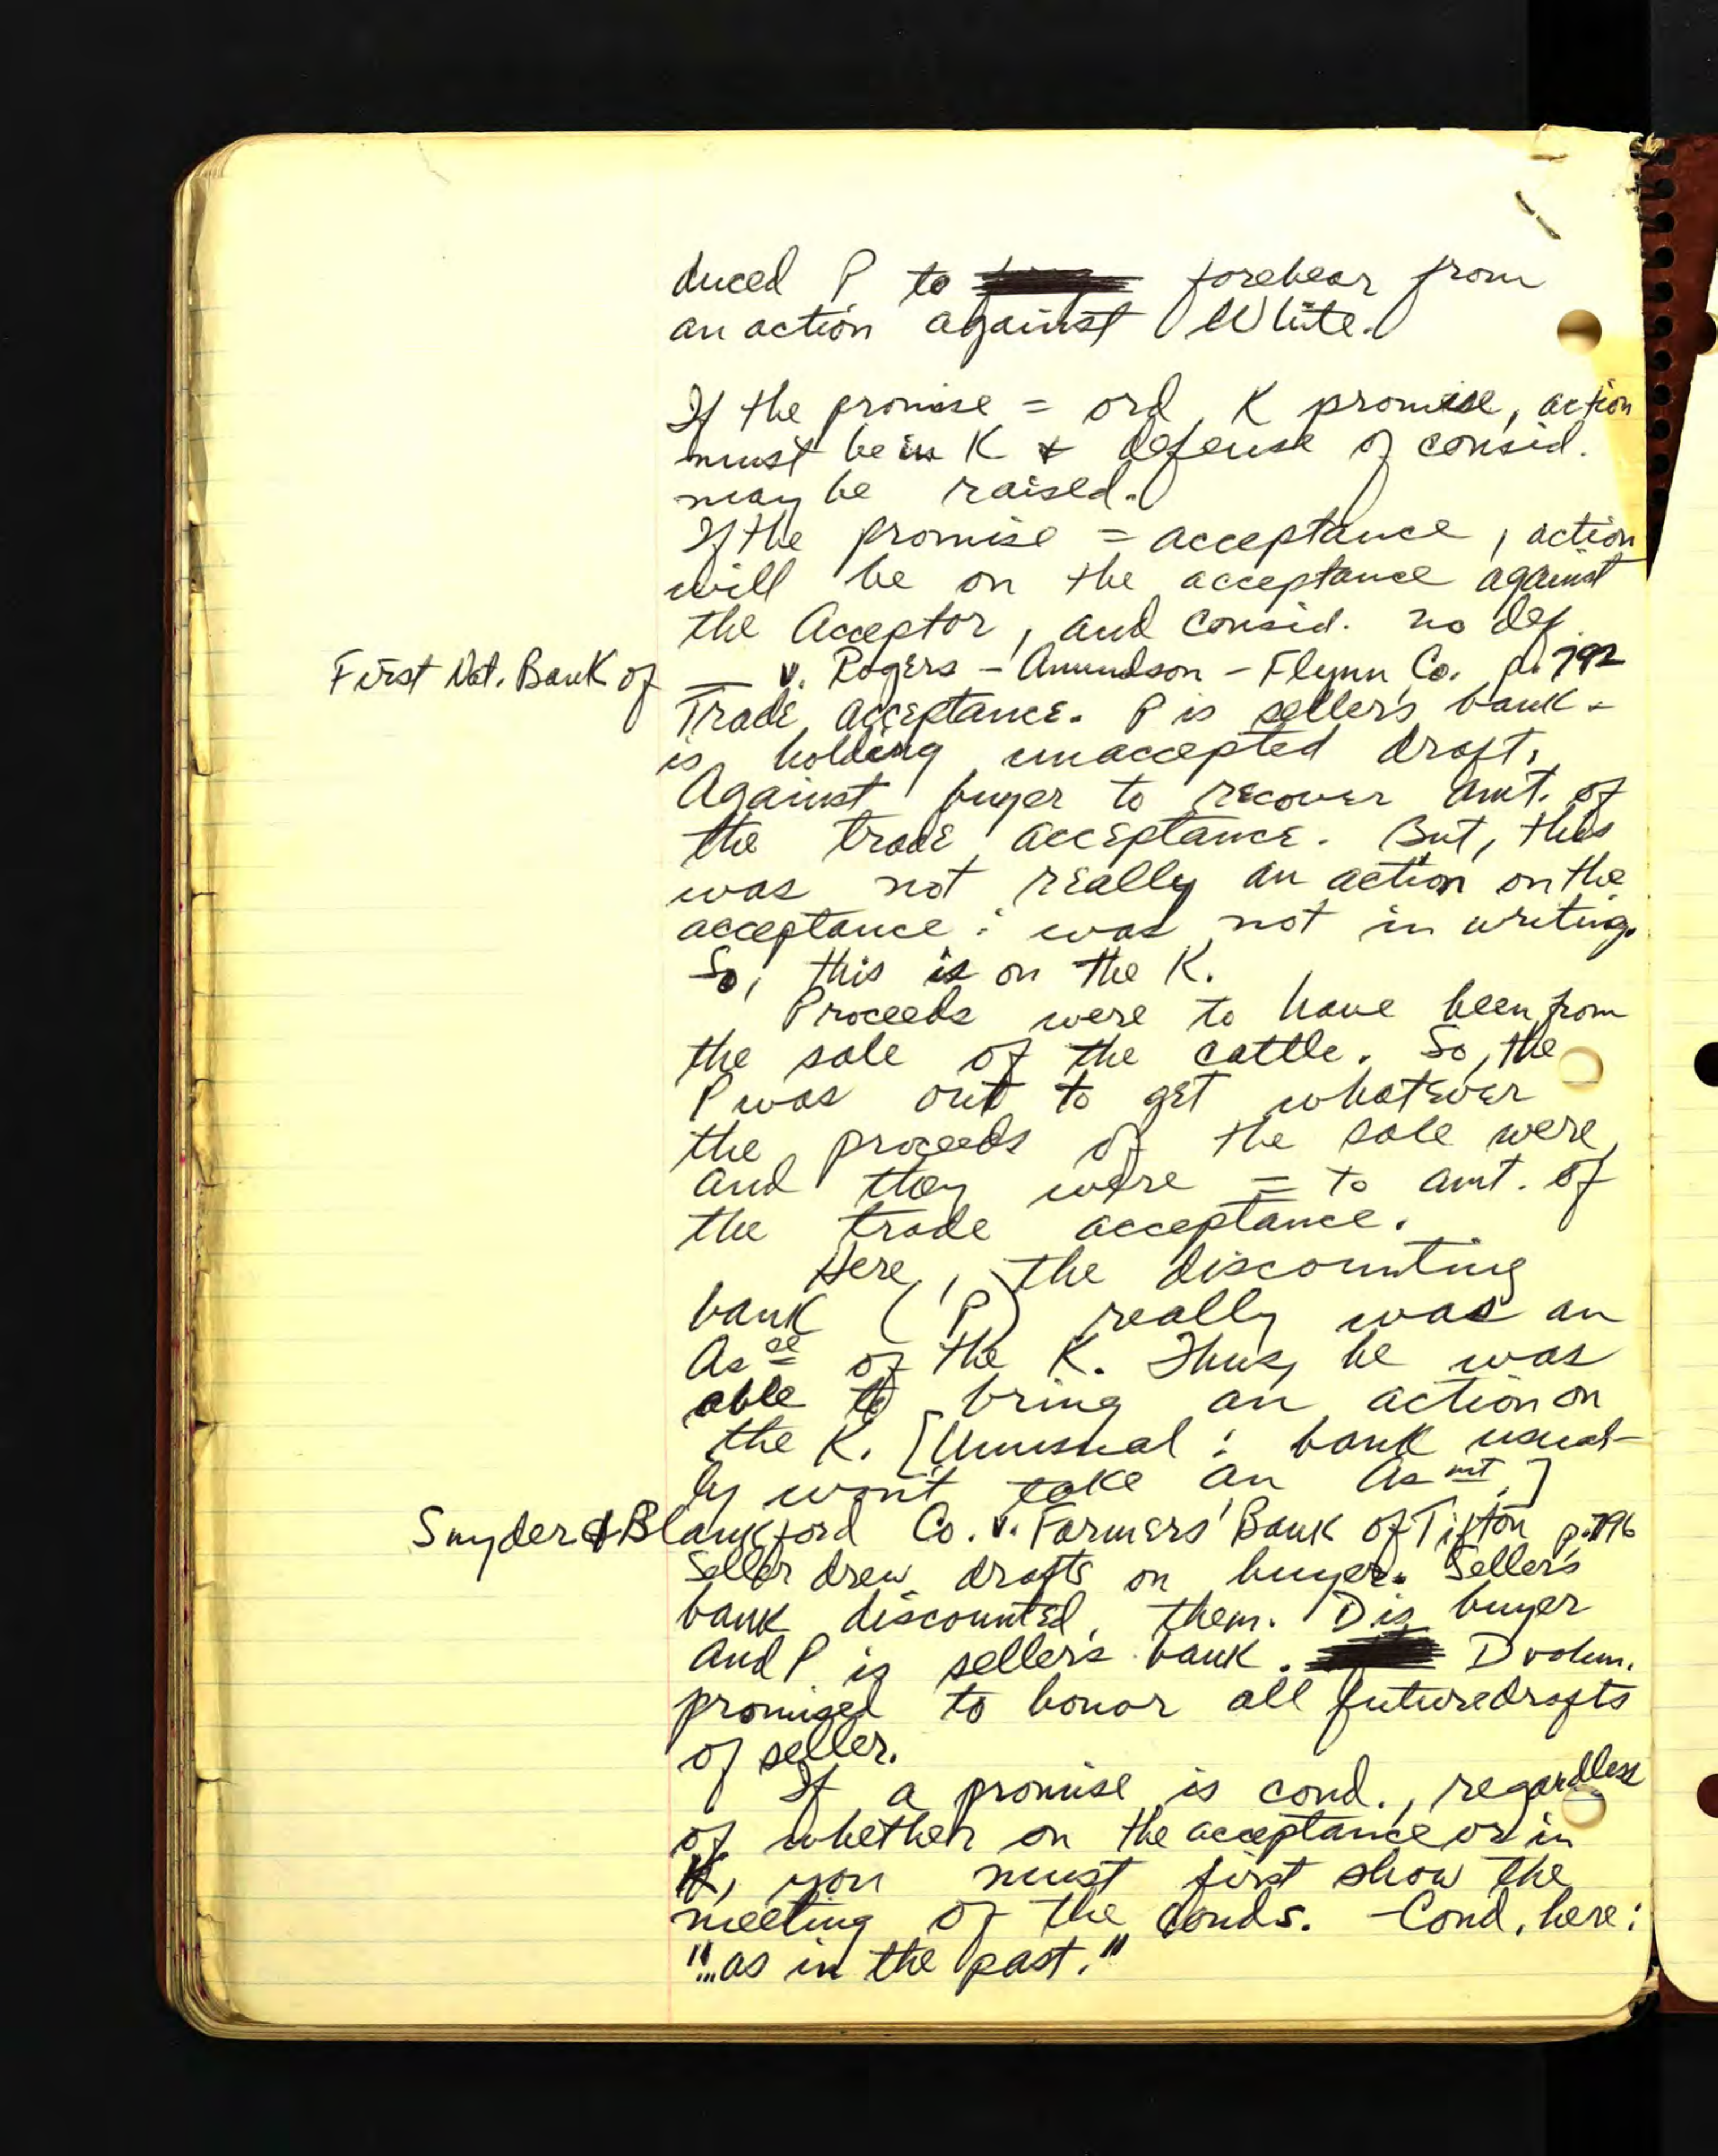 duced P to forebear from
an action against White.
If the promise = ord. K promise, action
must be in K & defense of consid.
may be raised.
If the promise = acceptance, action
will be on the acceptance against
the Acceptor, and consid. no def.
First Nat. Bank of — v. Rogers - Amundson - Flynn Co. p. 792
Trade acceptance. P is seller's bank -
is holding unaccepted draft.
Against buyer to recover amt. of
the trade acceptance. But, this
was not really an action on the
acceptance: was not in writing.
So, this is on the K.
Proceeds were to have been from
the sale of the cattle. So, the
P was out to get whatever
the proceeds of the sale were,
and they were = to amt. of
the trade acceptance.
Here, the discounting
bank (P) really was an
Asee of the K. Thus, he was
able to bring an action on
the K. [Unusual: bank usual-
ly won't take an Asmt.]
Snyder & Blankford Co. v. Farmers' Bank of Tifton p. 796
Seller drew drafts on buyer. Seller's
bank discounted them. D is buyer
and P is seller's bank. D volun.
promised to honor all future drafts
of seller.
If a promise is cond., regardless
of whether on the acceptance or in
K, you must first show the
meeting of the conds. - Cond. here:
"...as in the past."